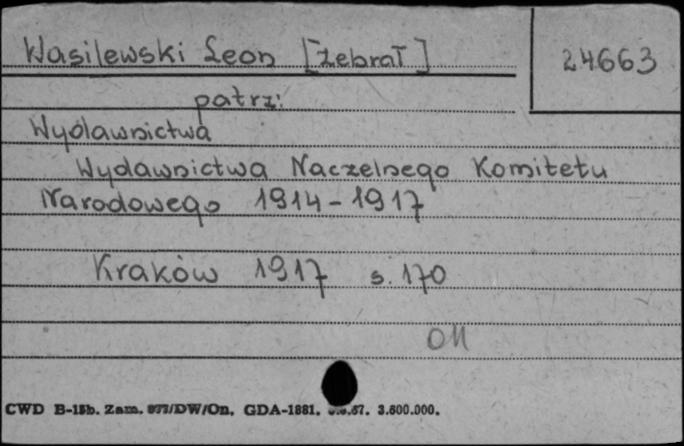 Wasilewski Leon [zebrał]
24663
patrz:
Wydawnictwa
Wydawnictwa Naczelnego Komitetu
Narodowego 1914-1917
Kraków 1917 s. 170
CWD B-15b. Zam. /DW/On. GDA-1881. .67. 3.600.000.